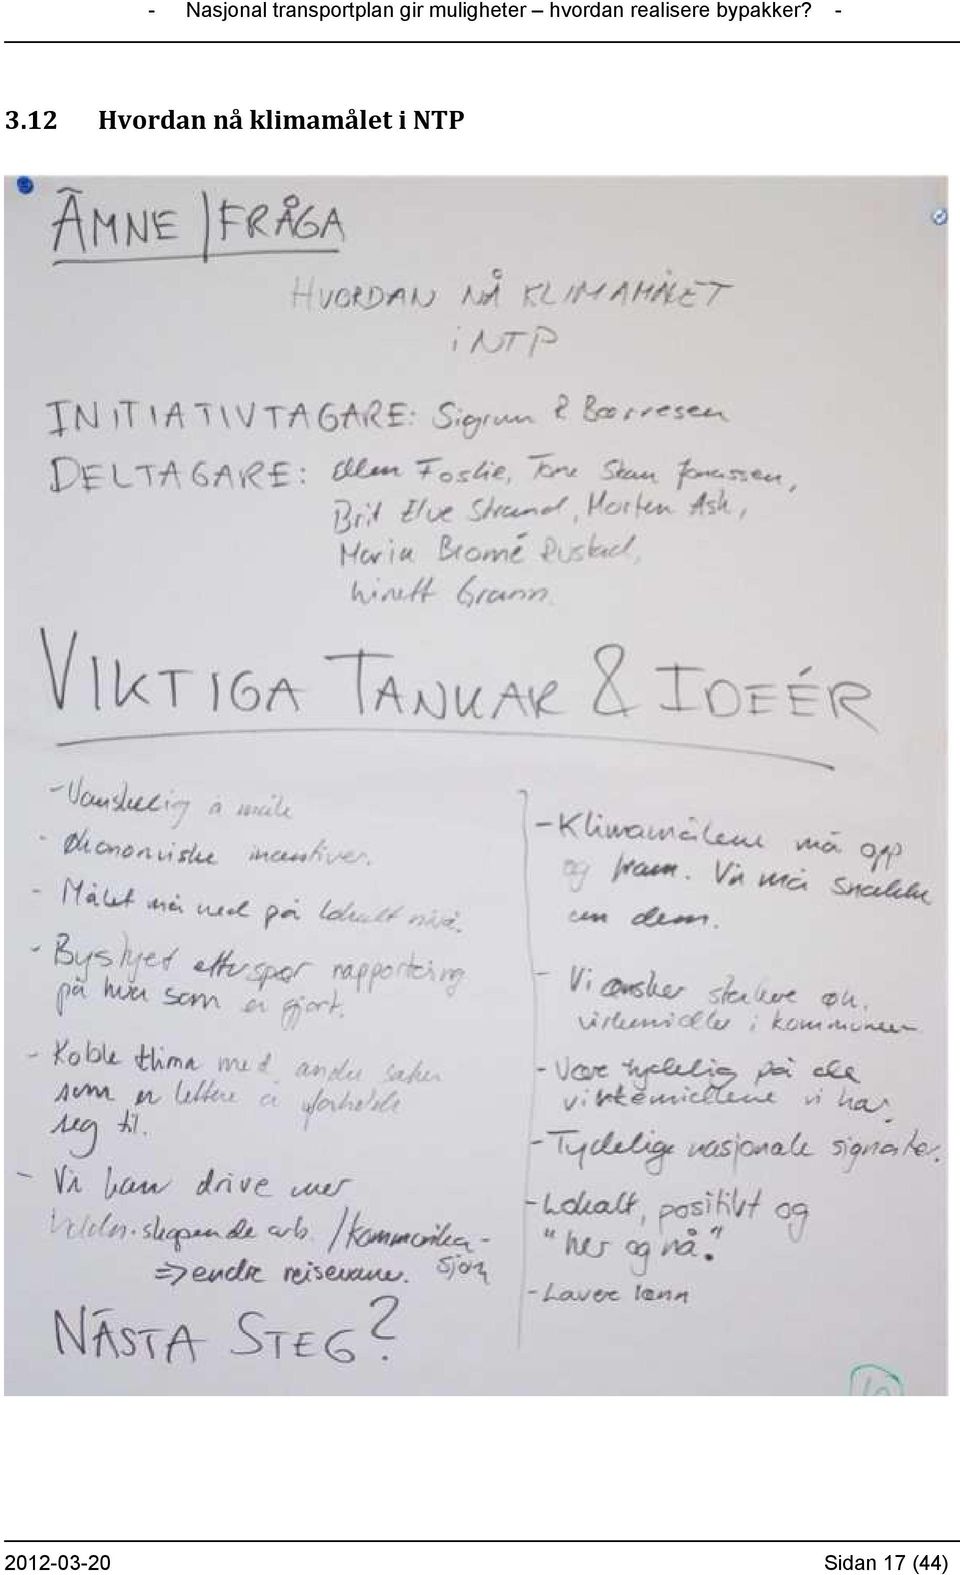 - Nasjonal transportplan gir muligheter – hvordan realisere bypakker? -
3.12 Hvordan nå klimamålet i NTP
ÄMNE/FRÅGA
HVORDAN NÅ KLIMAMÅLET
i NTP
INITIATIVTAGARE: Sigrun
DELTAGARE: Ellen Foslie, Tone Skau Jonassen,
Brit Elve Strand, Morten Ask,
Maria Bromé Rustad,
Grann.
VIKTIGA TANKAR & IDEÉR
- Vanskelig å måle
- Økonomiske incentiver.
- Målet må ned på lokalt nivå.
- Bystyret etterspør rapportering
på hva som er gjort.
- Koble klima med andre saker
som er lettere å forholde
seg til.
- Vi kan drive mer
holdn.skapende arb./kommunika-
sjon
=> endre reisevaner.
- Klimamålene må opp
og fram. Vi må snakke
om dem.
- Vi ønsker sterkere øk.
virkemidler i kommunen
- Være tydelig på de
virkemidlene vi har.
- Tydelige nasjonale signaler.
- Lokalt, positivt og
"her og nå."
- Lavere lønn
NÄSTA STEG?
2012-03-20 Sidan 17 (44)